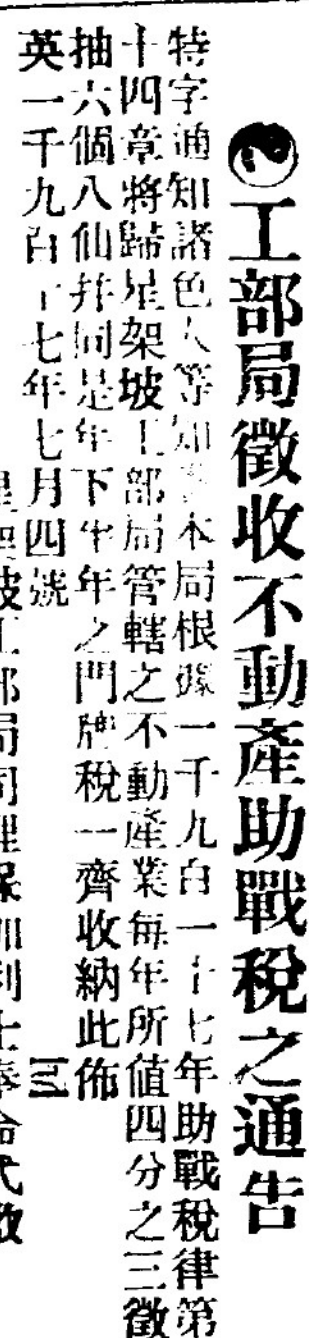 工部局徵收不動產助戰稅之通告
特字通知諸色人等知悉本局根據一千九百一十七年助戰稅律第
十四章將歸星架坡工部局管轄之不動產業每年所值四分之三徵
抽六個八仙幷同是年下半年之門牌稅一齊收納此佈
英一千九百十七年七月四號
坡工部局司理